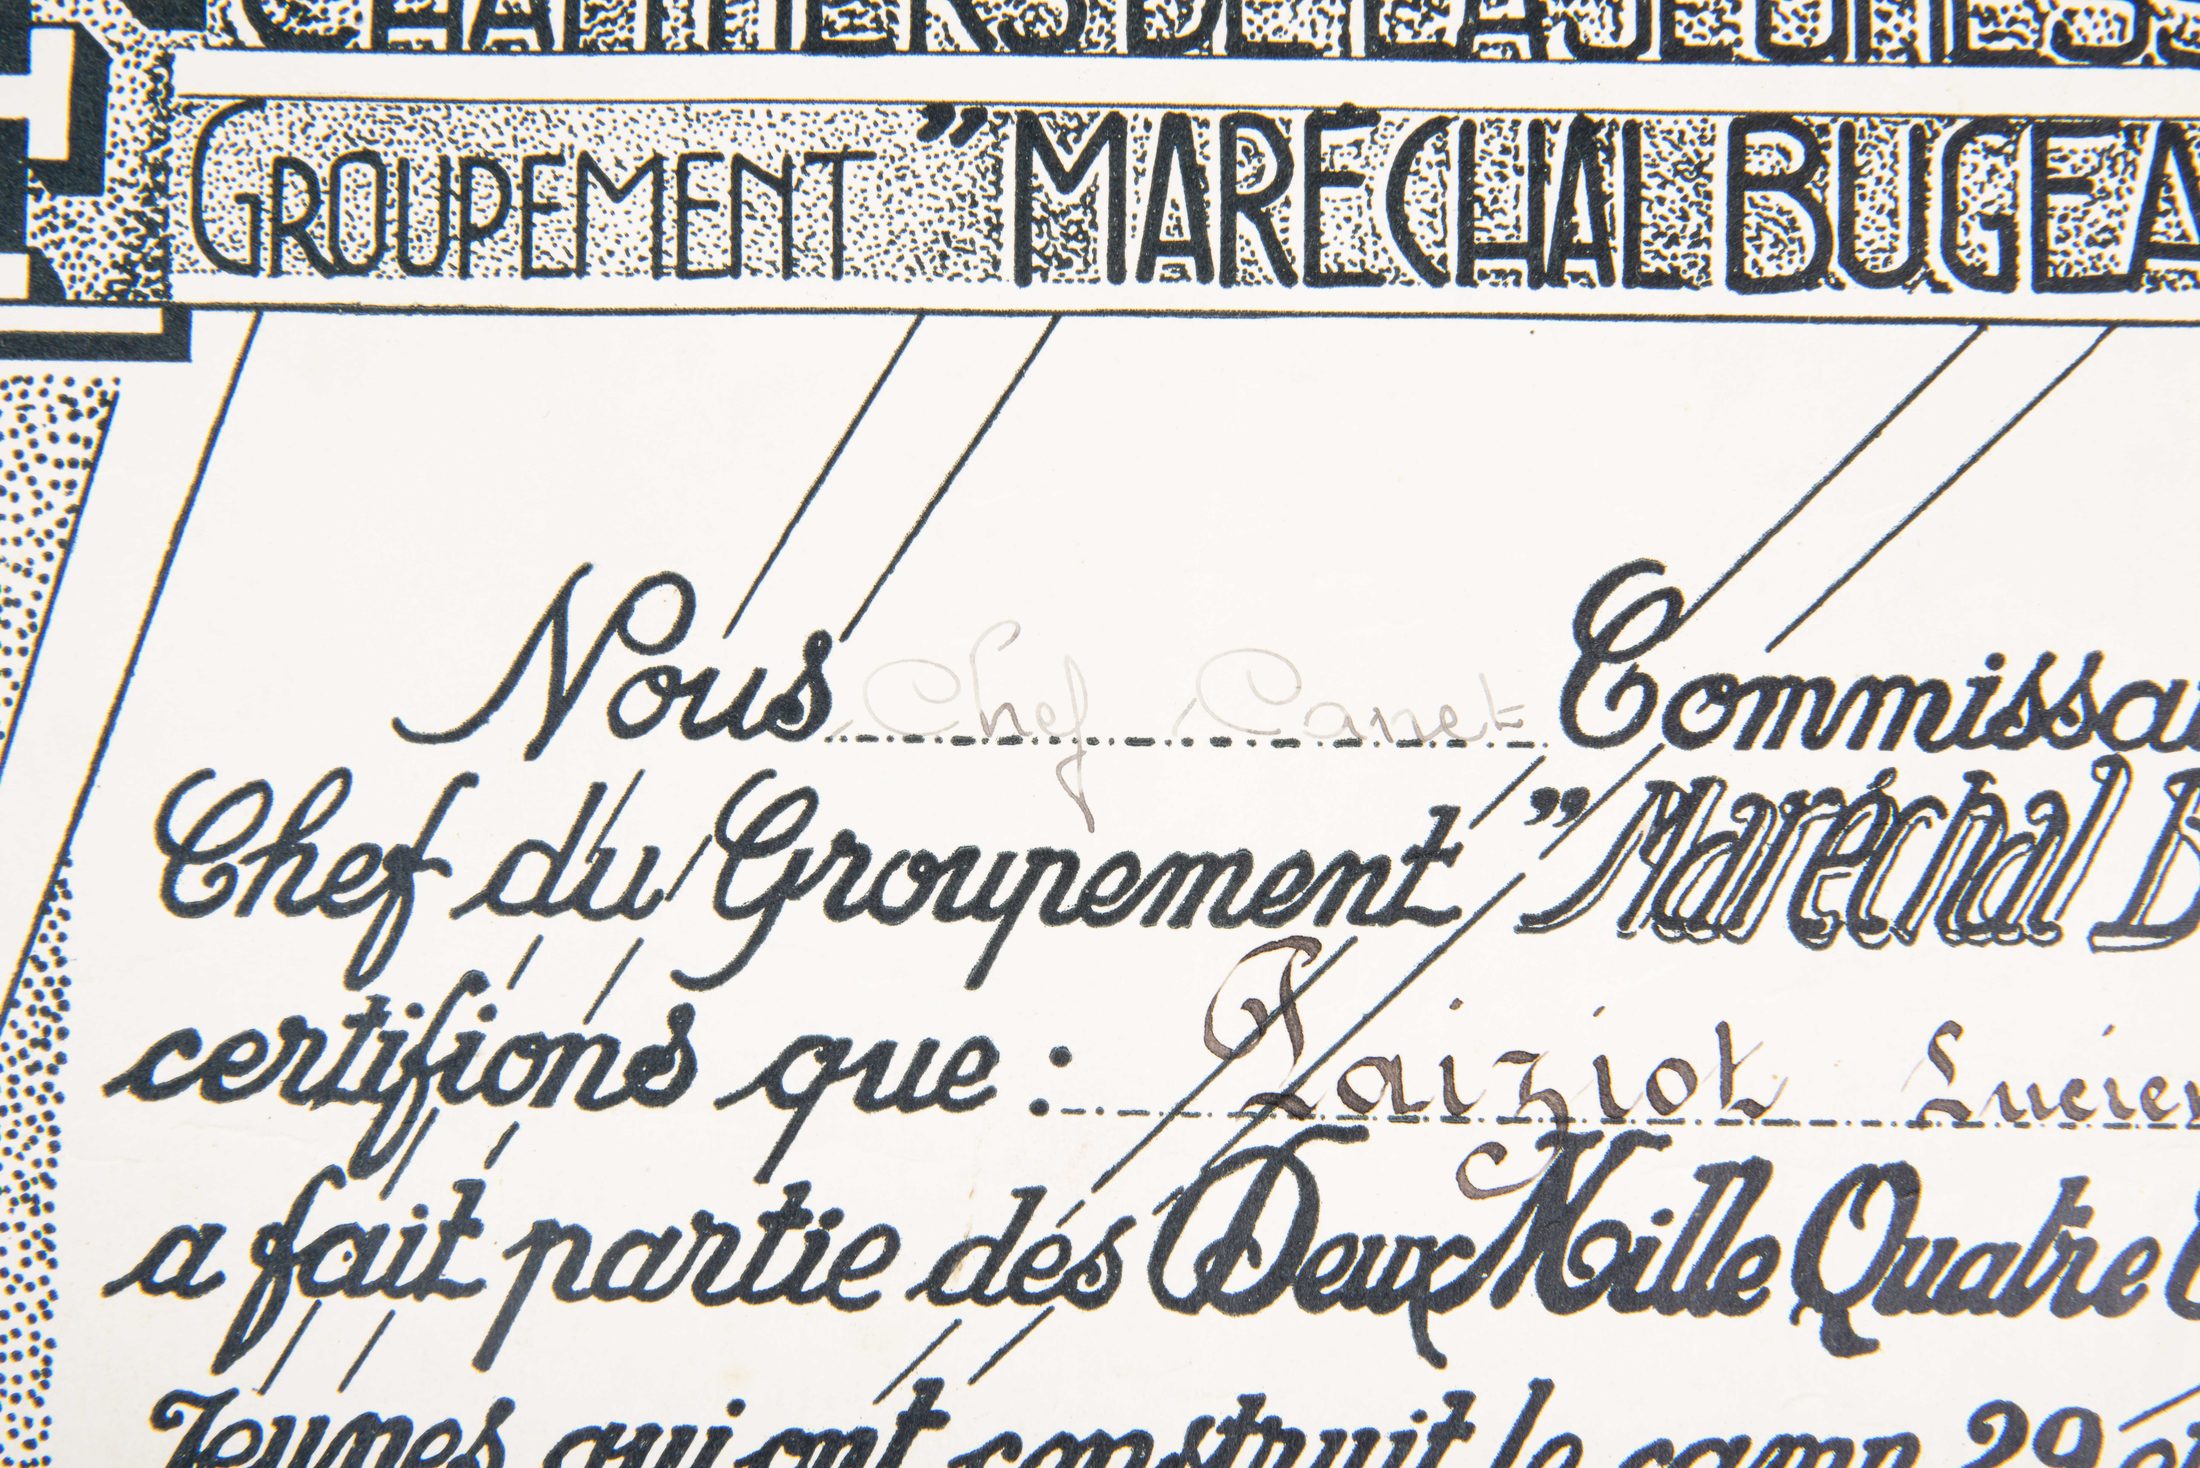 CHANTIERS DE LA JEUNESS
GROUPEMENT "MARÉCHAL BUGEA
Nous Chef Canet Commissai
Chef du Groupement "Maréchal B
certifions que : Paiziot Lucien
a fait partie des Deux Mille Quatre C
Jeunes qui ont construit le camp 29 et